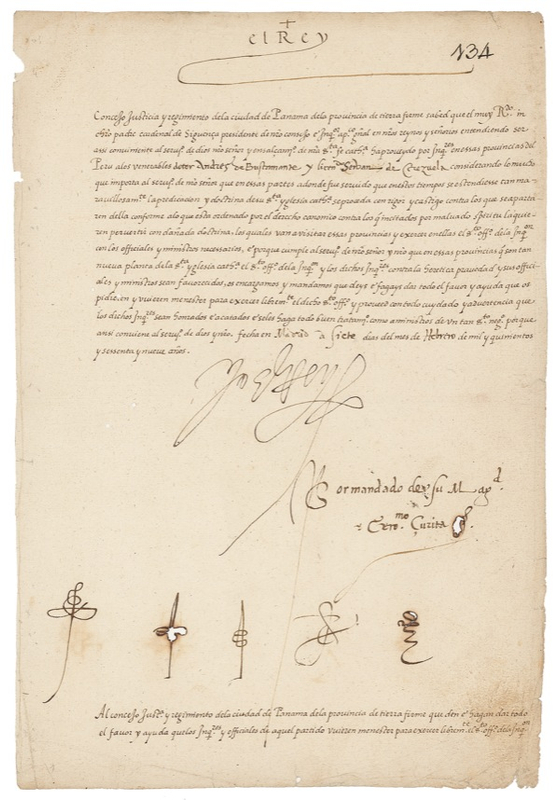 el Rey
134
Concejo Justicia y regimiento dela ciudad de Panama dela provincia de tierra firme sabed que el muy Rdo. in
chro padre cardenal de Siguença presidente de nro consejo e Inqor. apco. gñal en nros reynos y señorios entendiendo ser
assi conviniente al servio. de dios nro señor y ensalçamio. de nra sta. fe catha. ha proveydo por Inqres. en essas provincias del
Peru alos venerables doctor Andres de Bustamante y licendo Servan de Cerezuela considerando lo mucho
que importa al servio. de nro señor que en essas partes adonde fue servido que en estos tiempos se estendiesse tan ma-
ravillosamte. la predicacion y doctrina de su sta. yglesia catha. se proceda con rigor y castigo contra los que se aparta-
ren della conforme alo que esta ordenado por el derecho contra los q̃ incitados por malvado spiritu la quie-
ren pervertir con dañada doctrina. los quales van a visitar essas provincias y exercer en ellas el sto. offo. dela Inqon
con los officiales y ministros necessarios, e porque cumple al servio. de nro señor y nro que en essas provincias q̃ son tan
nueva planta dela sta. yglesia catha. el sto. offo. dela Inqon y los dichos Inqres. contra la heretica pravedad y sus offici-
ales y ministros sean favorecidos, os encargamos y mandamos que deys e fagays dar todo el favor y ayuda que os
pidieren y vuieren menester para exercer libremte. el dicho sto. offo. y proveed con todo cuydado y advertencia que
los dichos Inqres. sean honrados e acatados e se les haga todo buen tratamo. como a ministros de vn tan sto. nego. porque
ansi conviene al servio. de dios y nro. fecha en Madrid a siete dias del mes de Hebrero de mil y quinientos
y sessenta y nueve años.
Por mandado de su Magd.
Geromo. Çurita
Al concejo Justa. y regimiento dela ciudad de Panama dela provincia de tierra firme que den e hagan dar todo
el favor y ayuda quelos Inqres. y officiales de aquel partido vuieren menester para exercer libremte. el sto. offo. dela Inqon